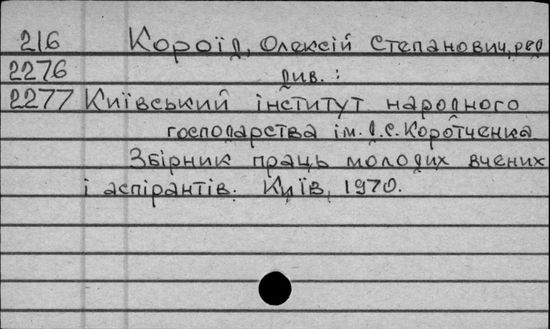 216 Короїд, Олексій Степанович, ред
2276 див. :
2277 Київський інститут народного
господарства ім. Д.С.Коротченка
Збірник праць молодих вчених
і аспірантів. Київ, 1970.